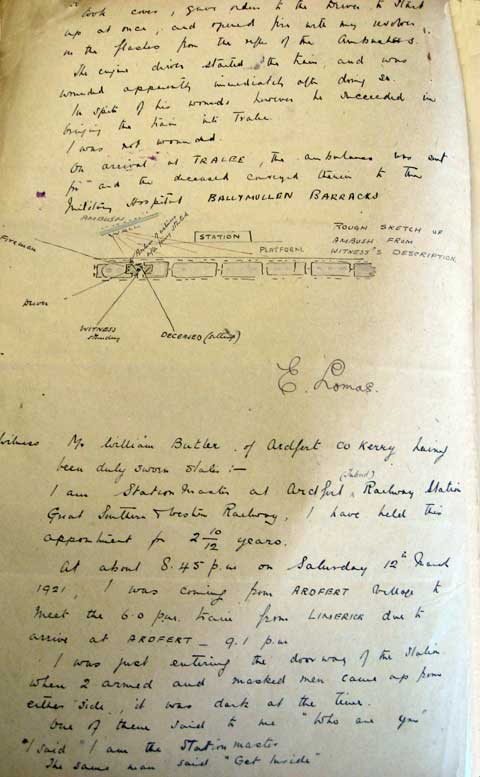 took cover, gave orders to the Driver to start
up at once, and opened fire with my revolver,
on the flashes from the rifles of the Ambushers.
The engine driver started the train, and was
wounded apparently immediately after doing so.
In spite of his wounds however he succeeded in
bringing the train into Tralee.
I was not wounded.
On arrival at TRALEE, the ambulance was sent
for and the deceased conveyed therein to the
Military Hospital BALLYMULLEN BARRACKS
AMBUSH
WALL
STATION
PLATFORM
ROUGH SKETCH OF
AMBUSH FROM
WITNESS'S DESCRIPTION
Fireman
Driver
WITNESS
standing
DECEASED (sitting)
E. Lomas.
Witness Mr William Butler, of Ardfert Co Kerry having
been duly sworn states :-
I am Station Master at Ardfert Railway Station
Great Southern & Western Railway, I have held this
appointment for 2 10/12 years.
At about 8.45 p.m on Saturday 12th March
1921, I was coming from ARDFERT Village to
meet the 6.0 p.m. train from LIMERICK due to
arrive at ARDFERT - 9.1 p.m
I was just entering the doorway of the Station
when 2 armed and masked men came up from
either side, it was dark at the time.
One of them said to me "Who are you"
"I said" I am the Station master
The same man said "Get Inside"